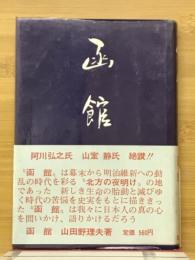 函館
阿川弘之氏 山室 静氏 絶讃!!
“函 館”は幕末から明治維新への動
乱の時代を彩る“北方の夜明け”の地
であった 新しき生命の胎動と滅びゆ
く時代の苦悩を史実をもとに描ききっ
た“函 館”は我々に日本人の真の心
を問いかけ、語りかけるだろう
函 館 山田野理夫著 定価 560円